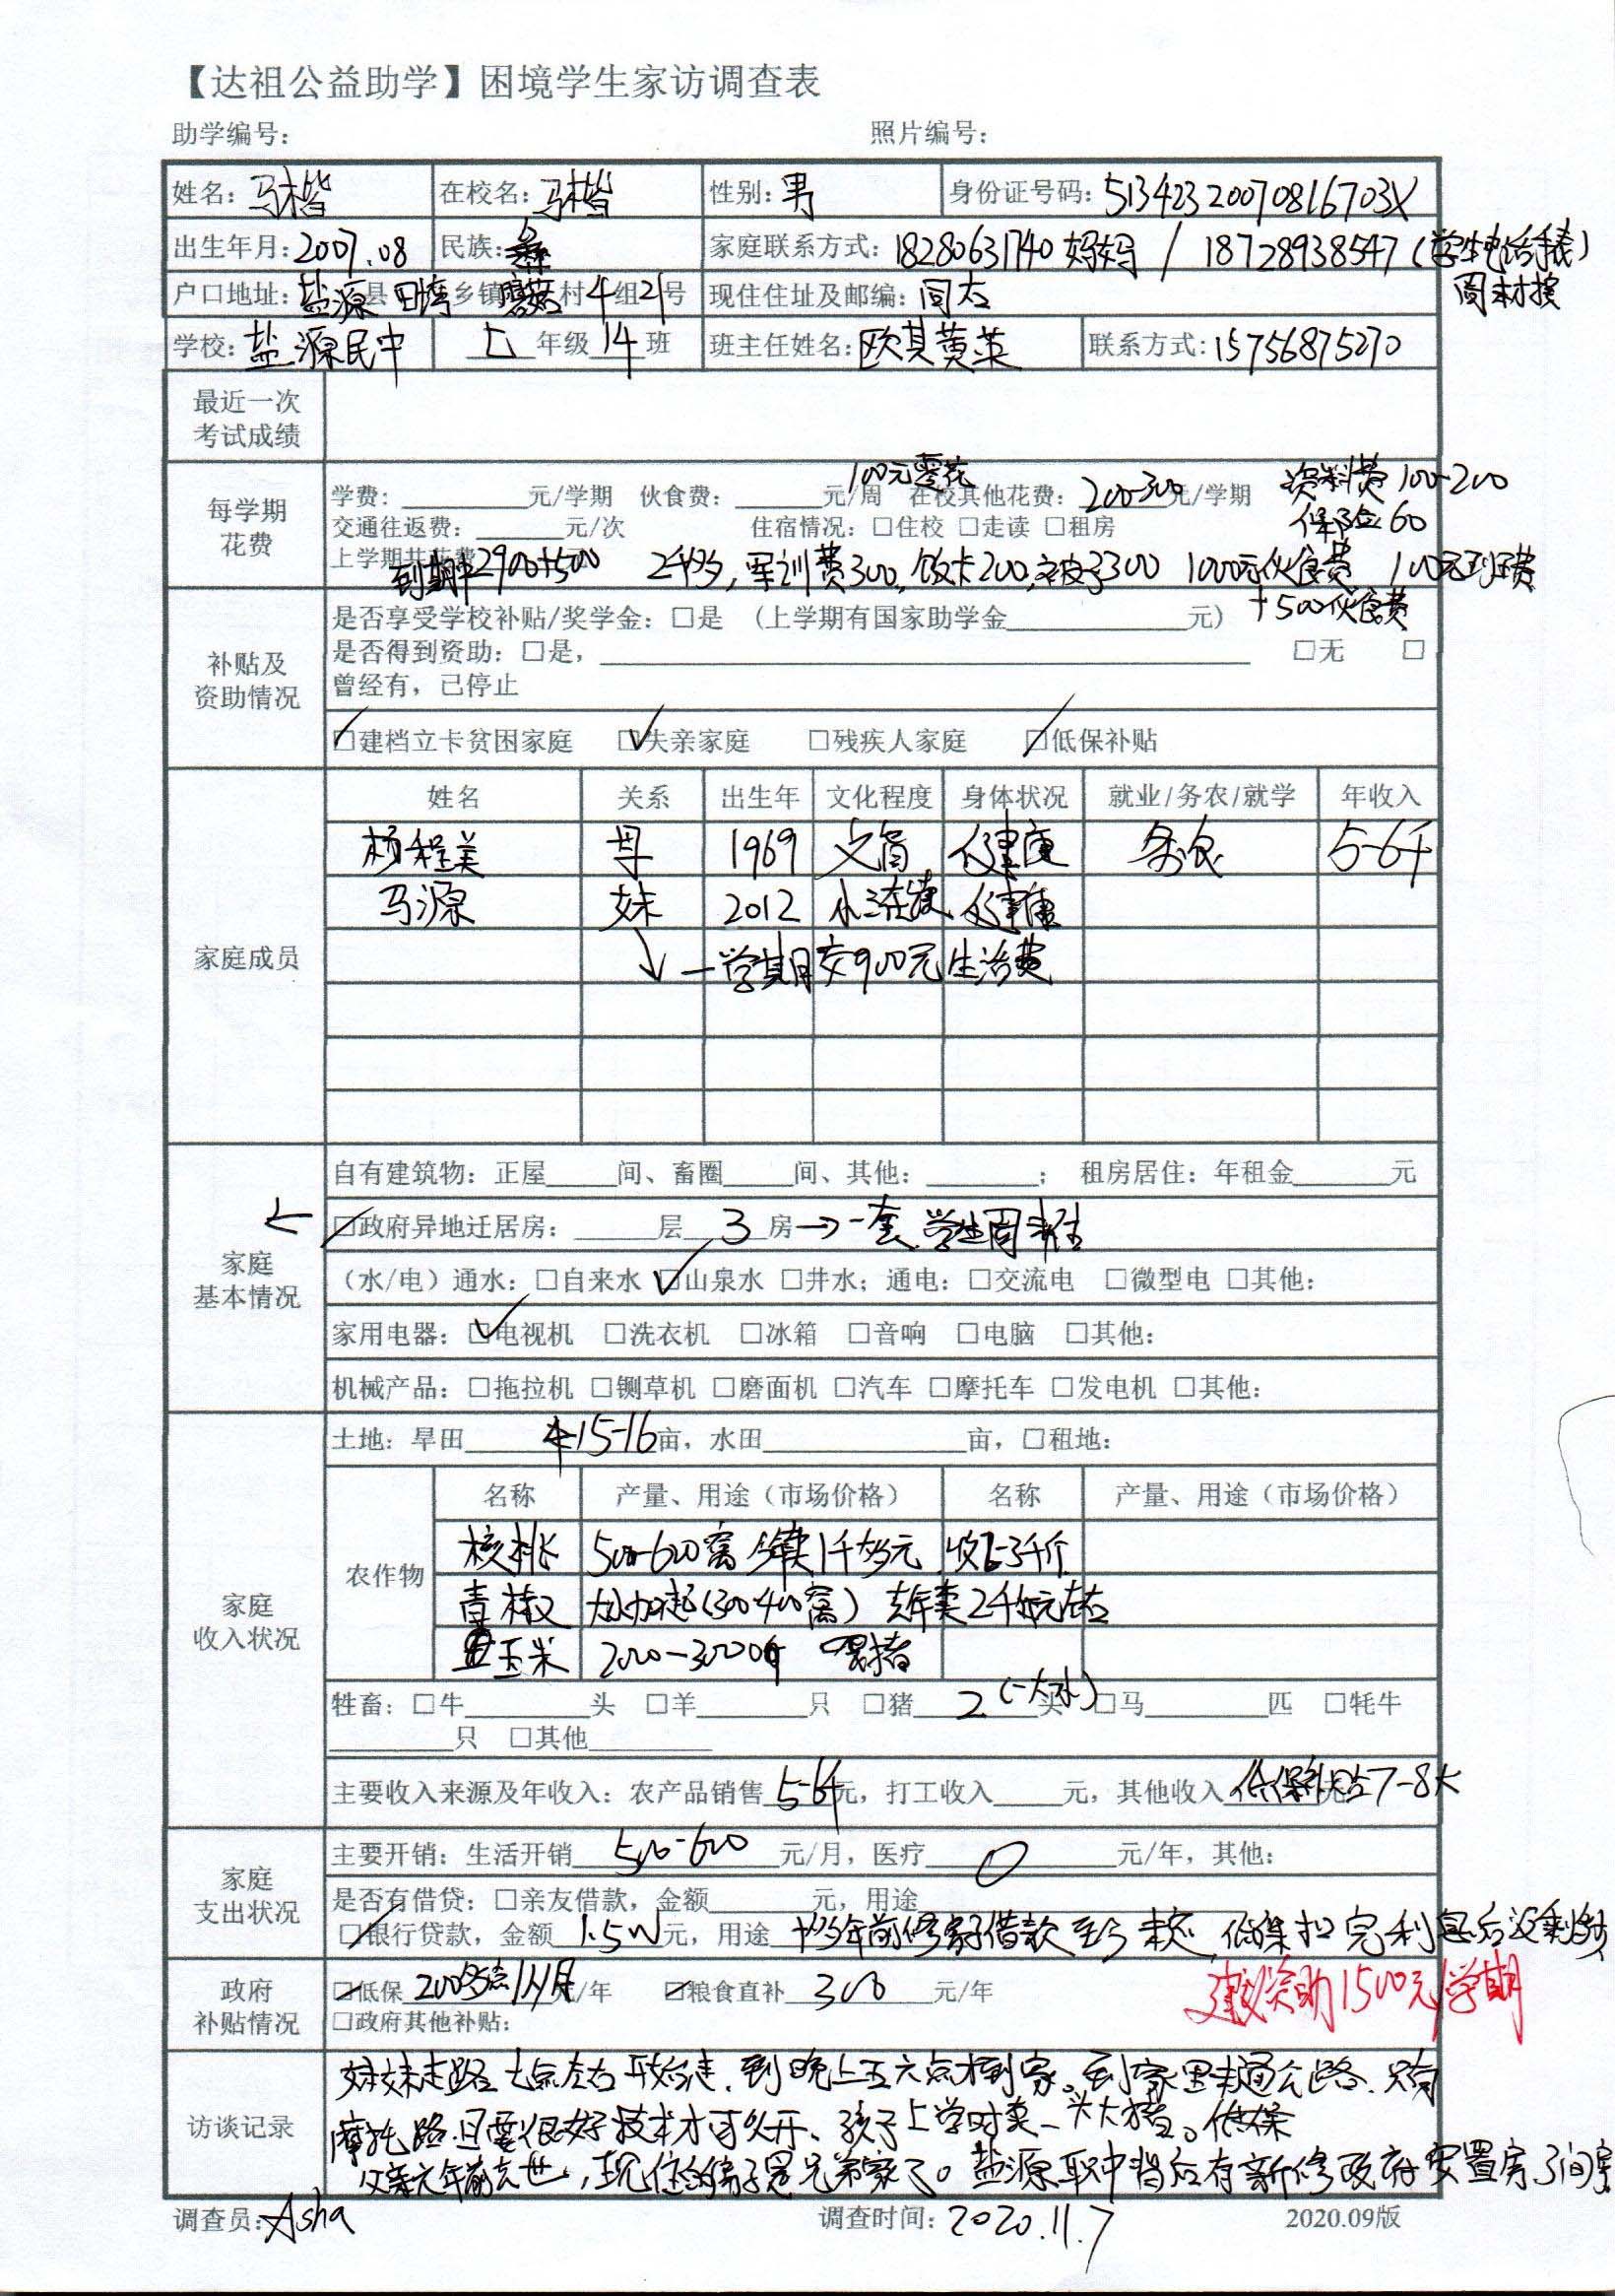 【达祖公益助学】困境学生家访调查表
助学编号： 照片编号：
姓名：马楷 在校名：马楷 性别：男 身份证号码：51342320070816703X
出生年月：2007.08 民族：彝 家庭联系方式：18280631740 妈妈 / 18728938547（学生电话手表）
户口地址：盐源县 田湾乡镇 蘑菇村4组21号 现住住址及邮编：同左 周末打接
学校：盐源民中 七年级14班 班主任姓名：欧其黄英 联系方式：15756875270
最近一次
考试成绩
100元零花 资料费100-200
每学期
花费
学费：元/学期 伙食费：元/周 在校其他花费：200-300元/学期
保险60
交通往返费：元/次 住宿情况：□住校 □走读 □租房
上学期共花费 到期中2900+500 2千多，军训费300，饭卡200，被子300 1000元伙食费 100元班费
+500伙食费
补贴及
资助情况
是否享受学校补贴/奖学金：□是 （上学期有国家助学金元）
是否得到资助：□是， □无 □
曾经有，已停止
☑建档立卡贫困家庭 ☑失亲家庭 □残疾人家庭 ☑低保补贴
家庭成员
姓名 关系 出生年 文化程度 身体状况 就业/务农/就学 年收入
杨程美 母 1969 文盲 健康 务农 5-6千
马源 妹 2012 小三在读 健康
↓一学期交900元生活费
家庭
基本情况
自有建筑物：正屋间、畜圈间、其他：； 租房居住：年租金元
← ☑政府异地迁居房：层 3房→一套，学生周末住
（水/电）通水：□自来水 ☑山泉水 □井水；通电：□交流电 □微型电 □其他：
家用电器：☑电视机 □洗衣机 □冰箱 □音响 □电脑 □其他：
机械产品：□拖拉机 □铡草机 □磨面机 □汽车 □摩托车 □发电机 □其他：
家庭
收入状况
土地：旱田15-16亩，水田亩，□租地：
农作物
名称 产量、用途（市场价格） 名称 产量、用途（市场价格）
核桃 500-600窝 今年卖1千多元 收2-3千个
青椒 大小加起（300-400窝） 去年卖2千多元左右
玉米 2000-3000斤 喂猪
牲畜：□牛头 □羊只 □猪2（一大一小）头 □马匹 □牦牛
只 □其他
主要收入来源及年收入：农产品销售5-6千元，打工收入元，其他收入低保补贴7-8k
家庭
支出状况
主要开销：生活开销500-600元/月，医疗0元/年，其他：
是否有借贷：□亲友借款，金额元，用途
☑银行贷款，金额1.5W元，用途十多年前修房子借款至今未还，低保扣完利息后没剩多少
政府
补贴情况
☑低保200多点1人/月/年 ☑粮食直补300元/年
建议资助1500元/学期
□政府其他补贴：
访谈记录
妹妹走路七点左右开始走，到晚上五六点才到家。到家里未通公路，只有
摩托路且要很好技术才可以开、孩子上学时卖一头大猪。低保
父亲六年前去世，现住的房子是兄弟家了。盐源职中背后有新修政府安置房3间房
调查员：Asha 调查时间：2020.11.7 2020.09版